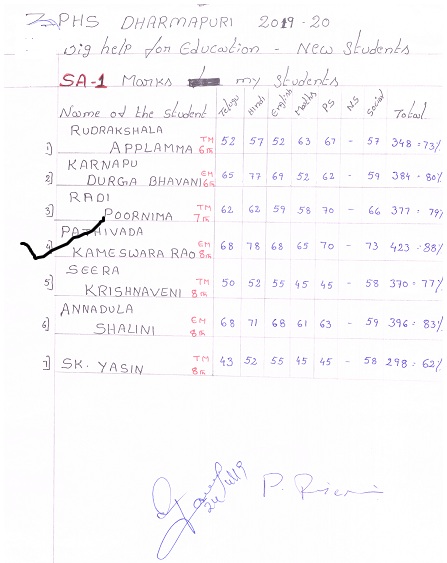 ZPHS DHARMAPURI 2019-20
Big help for Education - New Students
SA-1 Marks my Students
Name of the Student Telugu Hindi English Maths PS NS Social Total
1] RUDRAKSHALA
APPLAMMA TM 6th 52 57 52 63 67 - 57 348 = 73%
2] KARNAPU
DURGA BHAVANI EM 6th 65 77 69 52 62 - 59 384 = 80%
3] RADI
POORNIMA TM 7th 62 62 59 58 70 - 66 377 = 79%
4] PATHIVADA
KAMESWARA RAO EM 8th 68 78 68 65 70 - 73 423 = 88%
5] SEERA
KRISHNAVENI TM 8th 50 52 55 45 45 - 58 370 = 77%
6] ANNADULA
SHALINI EM 8th 68 71 68 61 63 - 59 396 = 83%
7] SK. YASIN TM 8th 43 52 55 45 45 - 58 298 = 62%